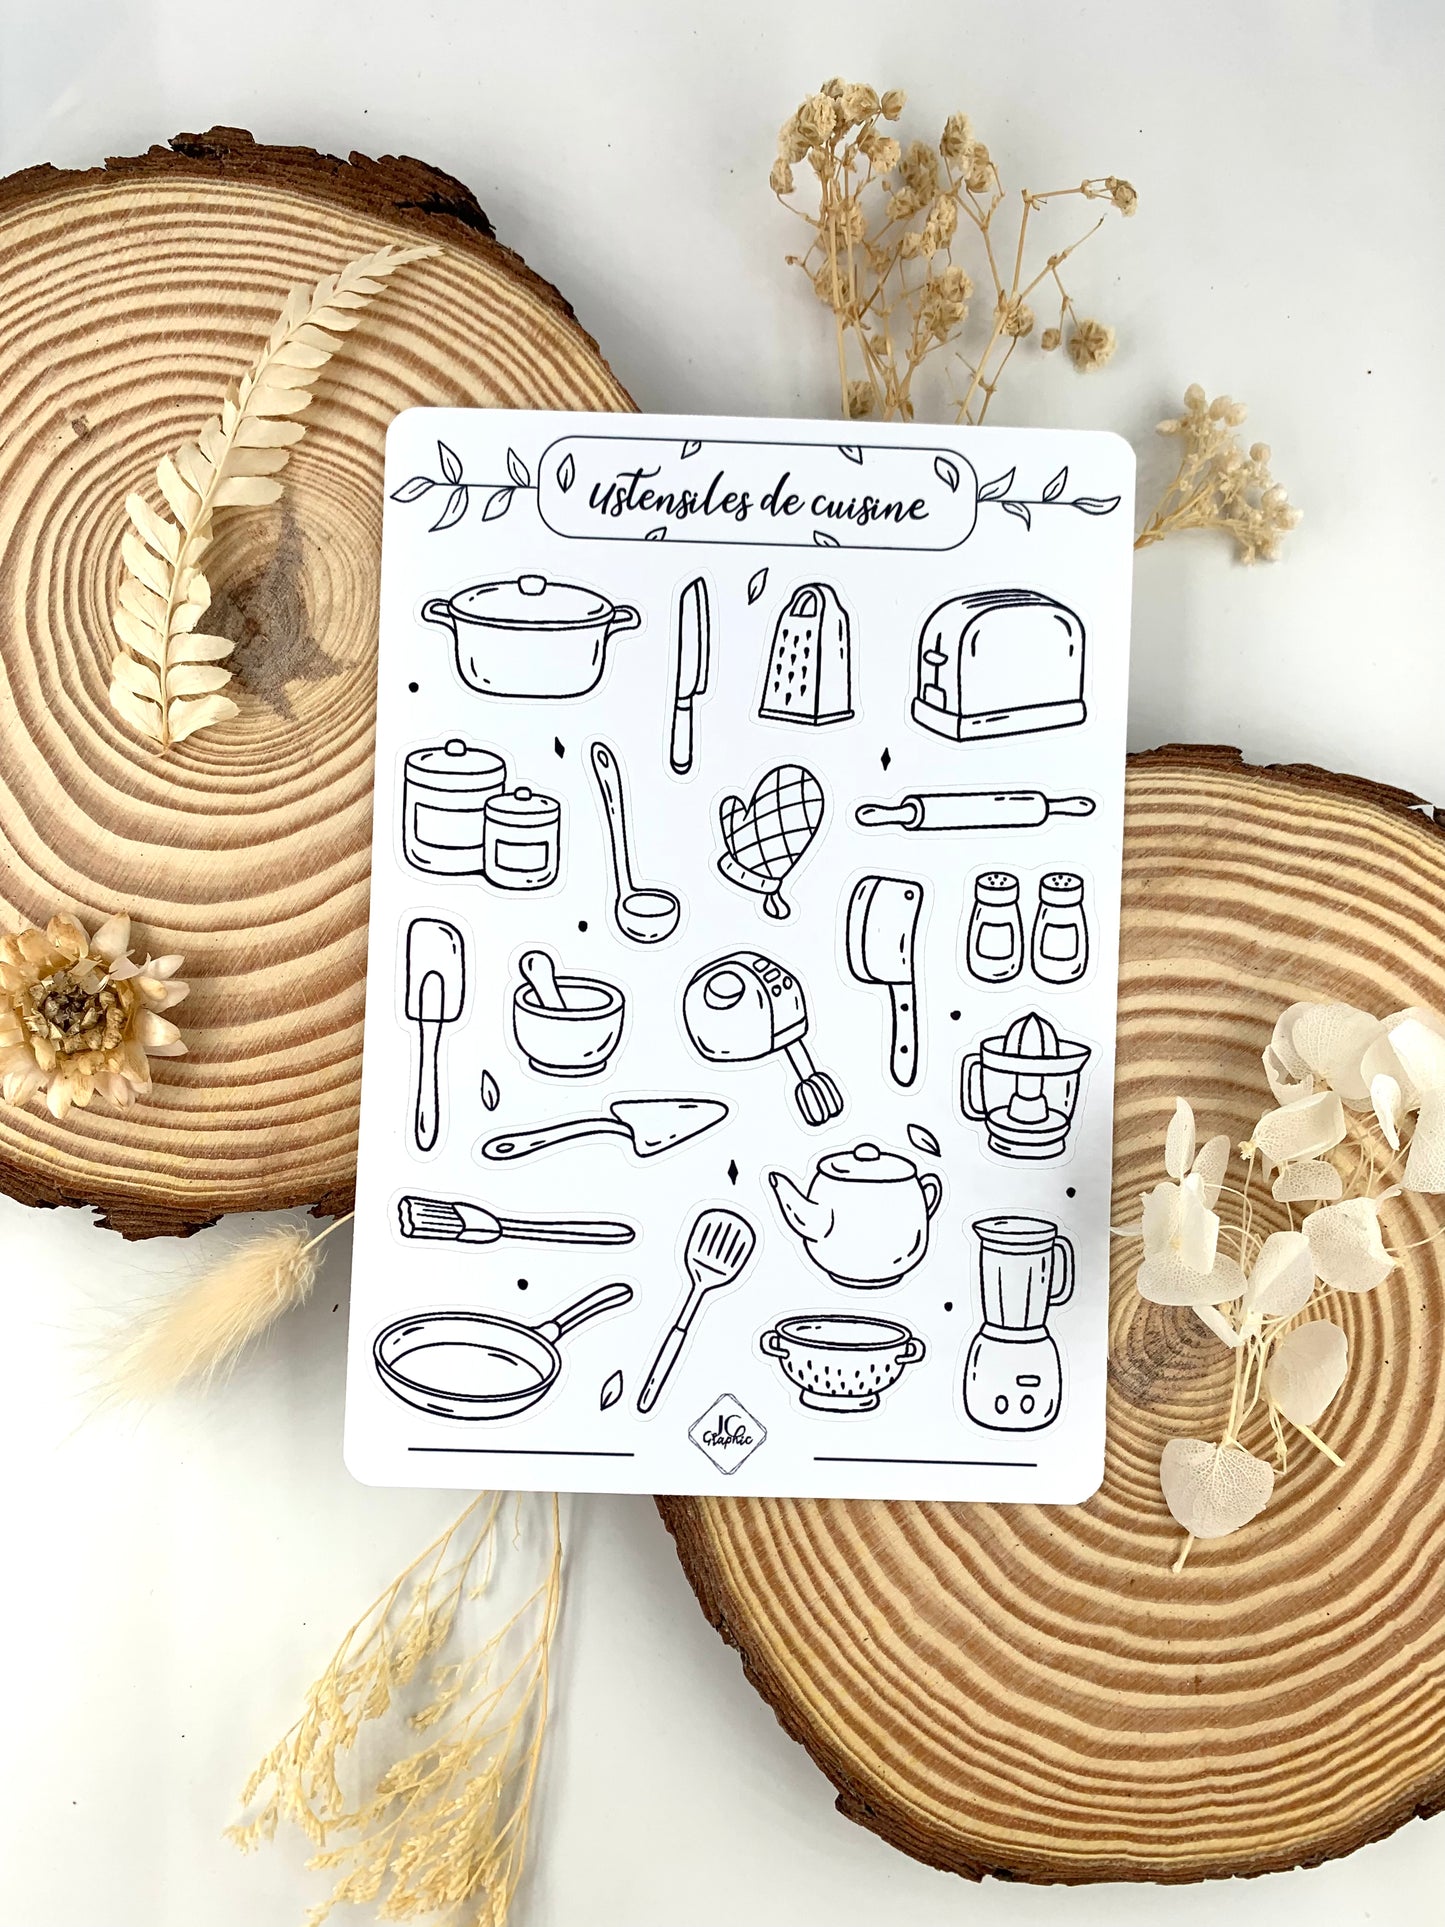 ustensiles de cuisine
JC
Graphic